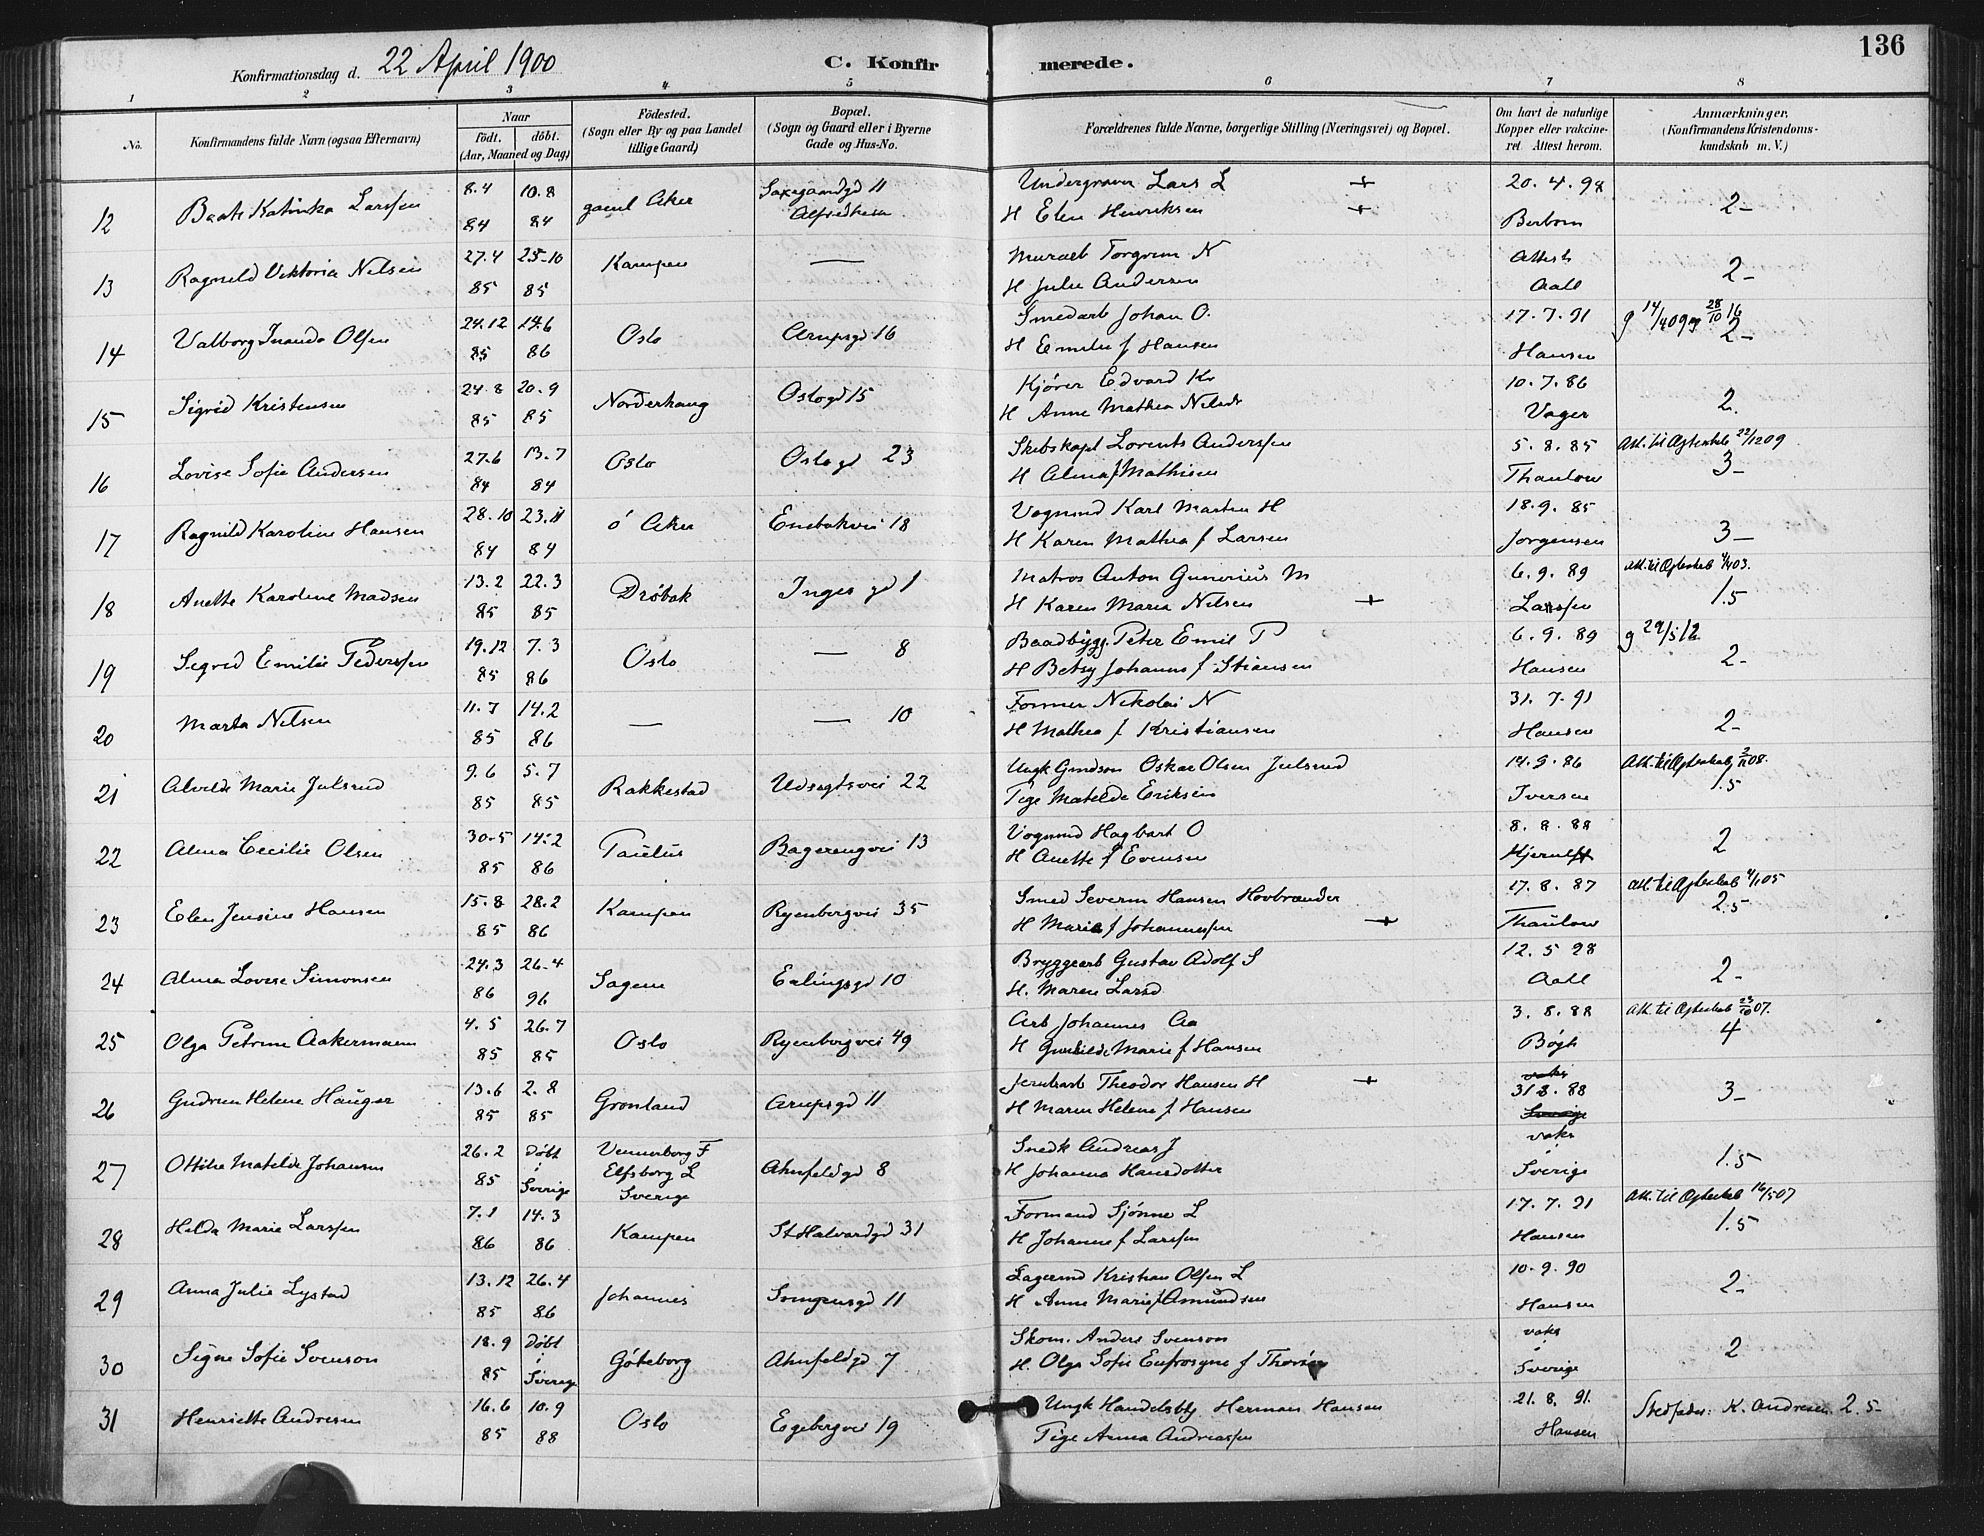 136
Konfirmationsdag d. 22 April 1900 C. Konfirmerede.
1 2 3 4 5 6 7 8
No. Konfirmandens fulde Navn (ogsaa Efternavn) Naar født. døbt. (Aar, Maaned og Dag) Fødested. (Sogn eller By og paa Landet tillige Gaard) Bopæl. (Sogn og Gaard eller i Byerne Gade og Hus-No. Forældrenes fulde Navne, borgerlige Stilling (Næringsvei) og Bopæl. Om havt de naturlige Kopper eller vakcineret. Attest herom. Anmærkninger. (Konfirmandens Kristendomskundskab m. V.)
12 Beate Katinka Larssen 8.4 10.8 gaml Aker Saxegaardgd 11 Undergraver Lars L + 20.4.98
84 84 Alfredhem H Elen Henriksen + 2-
13 Ragnild Viktoria Nilsen 27.4 25-10 Kampen — Murarb Torgrim N Attest
85 85 H Julie Andersen Aall 2-
14 Valborg Olsen 24.12 14.6 Oslo Arupsgd 16 Smedarb Johan O. 17.7.91 g 14/4 09 g 28/10 16
85 86 H Emilie f Hansen Hansen 2-
15 Sigrid Kristensen 24.8 20.9 Norderhaug Oslogd 15 Kjører Edvard Kr 10.7.86
85 85 H Anne Mathea Nilsdr Vager 2.
16 Lovise Sofie Andersen 27.6 13.7 Oslo Oslogd 23 Skibskapt Lorents Anderssen 5.8.85 Att. til Ægteskab 22/12 09
84 84 H Alma f Mathisen Thaulow 3-
17 Ragnild Karoline Hansen 28.10 23.11 ø Aker Enebakvei 18 Vognmd Karl Martin H 18.9.85
84 84 H Karen Mathea f Larsen Jorgensen 3-
18 Anette Karoline Madsen 13.2 22.3 Drøbak Inges gd 1 Matros Anton Gunerius M 6.9.89 Att. til Ægteskab 4/4 03.
85 85 H Karen Maria Nilsen + Larssen 1.5
19 Sigrid Emilie Pederssen 19.12 7.3 Oslo — 8 Baadbygg. Peter Emil P 6.9.89 g 29/5 12
85 86 H Betsy Johanne f Stiansen Hansen 2-
20 Marta Nilsen 11.7 14.2 — — 10 Former Nikolai N 31.7.91
85 86 H Mathea f Kristiansen Hansen 2-
21 Alvilde Marie Julsrud 9.6 5.7 Rakkestad Udsagtsvei 22 Ungk Gmdson Oskar Olsen Julsrud 14.9.86 Att. til Ægteskab 2/11 08.
85 85 Pige Matelde Eriksen Iversen 1.5
22 Alma Cecilie Olsen 30.5 14.2 Paulus Bagerengvei 13 Vognmd Hagbart O 8.8.88
85 86 H Anette f Evensen 2
23 Elen Jensine Hansen 15.8 28.2 Kampen Ryenbergvei 35 Smed Severin Hansen Hovbrænder 17.8.87 Att. til Ægteskab 4/1 05
85 86 H Marie f Johannessen + Thaulow 2.5
24 Alma Lovise Simonsen 24.3 26.4 Sagene Erlingsgd 10 Bryggearb Gustav Adolf S 12.5 98
86 96 H. Maren Larsd Aall 2-
25 Olga Petrine Aakermann 4.5 26.7 Oslo Ryenbergvei 49 Arb Johannes Aa 3.8.88 Att. til Ægteskab 23/10 07.
85 85 H Gunhilde Marie f Hansen Bøgh 4
26 Gudrun Helene Hauger 13.6 2.8 Gronland Arupsgd 11 Jernbarb Theodor Hansen H + vaks 31.8.88
85 85 H Maren Helene f Hansen Sverige 3-
27 Ottilie Matelde Johansen 26.2 Døbt Vennerborg F Snedk Andreas J vaks
85 i Sverige Elfsborg L Sverige Ahnfeldgd 8 H Johanna Hansdotter Sverige 1.5
28 Helda Marie Larssen 7.1 14.3 Kampen St Halvardgd 31 Formand Sjønne L 17.7.91 Att. til Ægteskab 16/5 07
86 86 H Johanne f Larssen Hansen 1.5
29 Anna Julie Lystad 13.12 26.4 Johannes Svingensgd 11 Lagermd Kristian Olsen L 10.9.90
85 86 H Anne Marie f Amundsen Hansen 2-
30 Signe Sofie Svenson 18.9 Døbt Göteborg Ahnfeldgd 7 Skom. Anders Svenson vaks
85 i Sverige H. Olga Sofie Eufrosyne f Sverige 2
31 Henriette Andresen 16.6 10.9 Oslo Egebergvei 19 Ungk Handelsbtj Herman Hansen 21.8.91. Stedfader: K. Andresen 2.5-
85 88 Pige Anna Andreassen Hansen